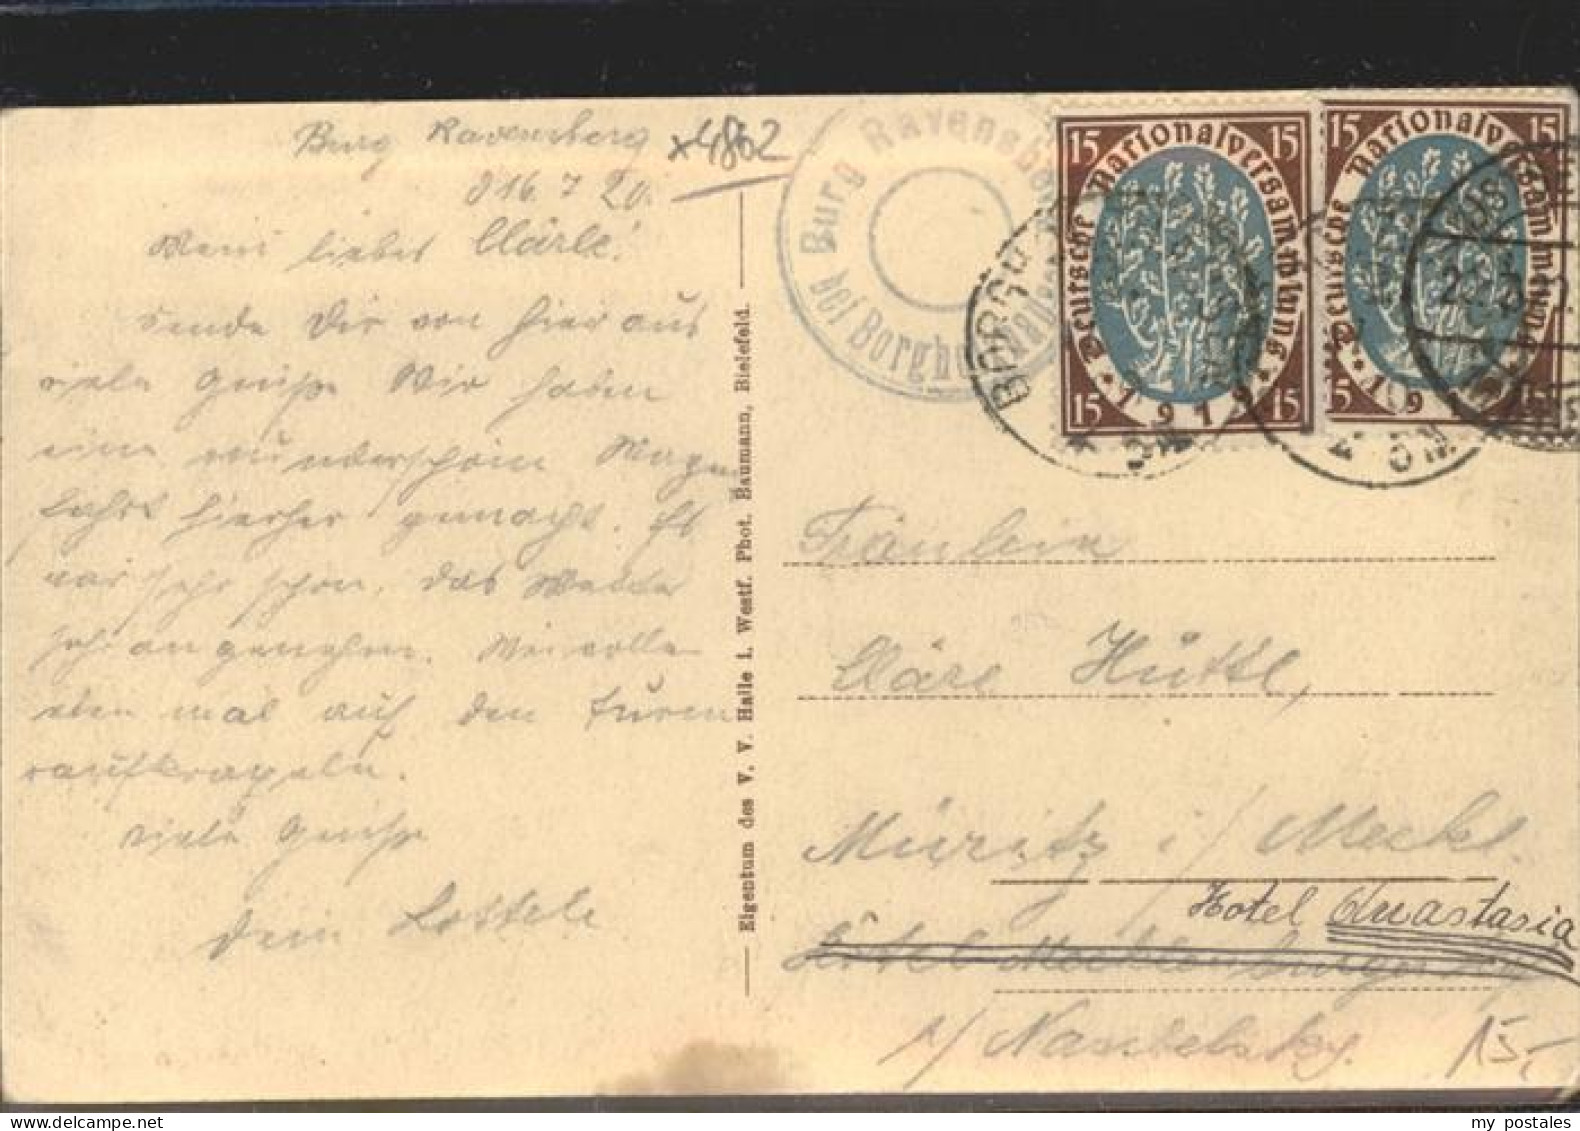 Burg Ravensberg
x4862
d 16. 7 20.
Mein liebes Clärle!
sende Dir von hier aus
viele Grüße Wir haben
eine wunderschöne Wagen
fahrt hierher gemacht. Es
war sehr schön. das Wetter
sehr angenehm. Wir wollen
eben mal auf den Turm
raufkraxeln.
Viele Grüße
Dein Lottele
Eigentum des V. V. Halle i. Westf. Phot. Baumann, Bielefeld.
Burg Ravensbe
bei Borgho
15 15
Deutsche Nationalversammlung
* 1919 *
15 15
15 15
Deutsche Nationalversammlung
* 1919 *
15 15
BORGH
Fräulein
Cläre Hüttl,
Müritz i/ Meckl.
Hotel Anastasia
Hôtel Mecklenburger
15,-
my postales